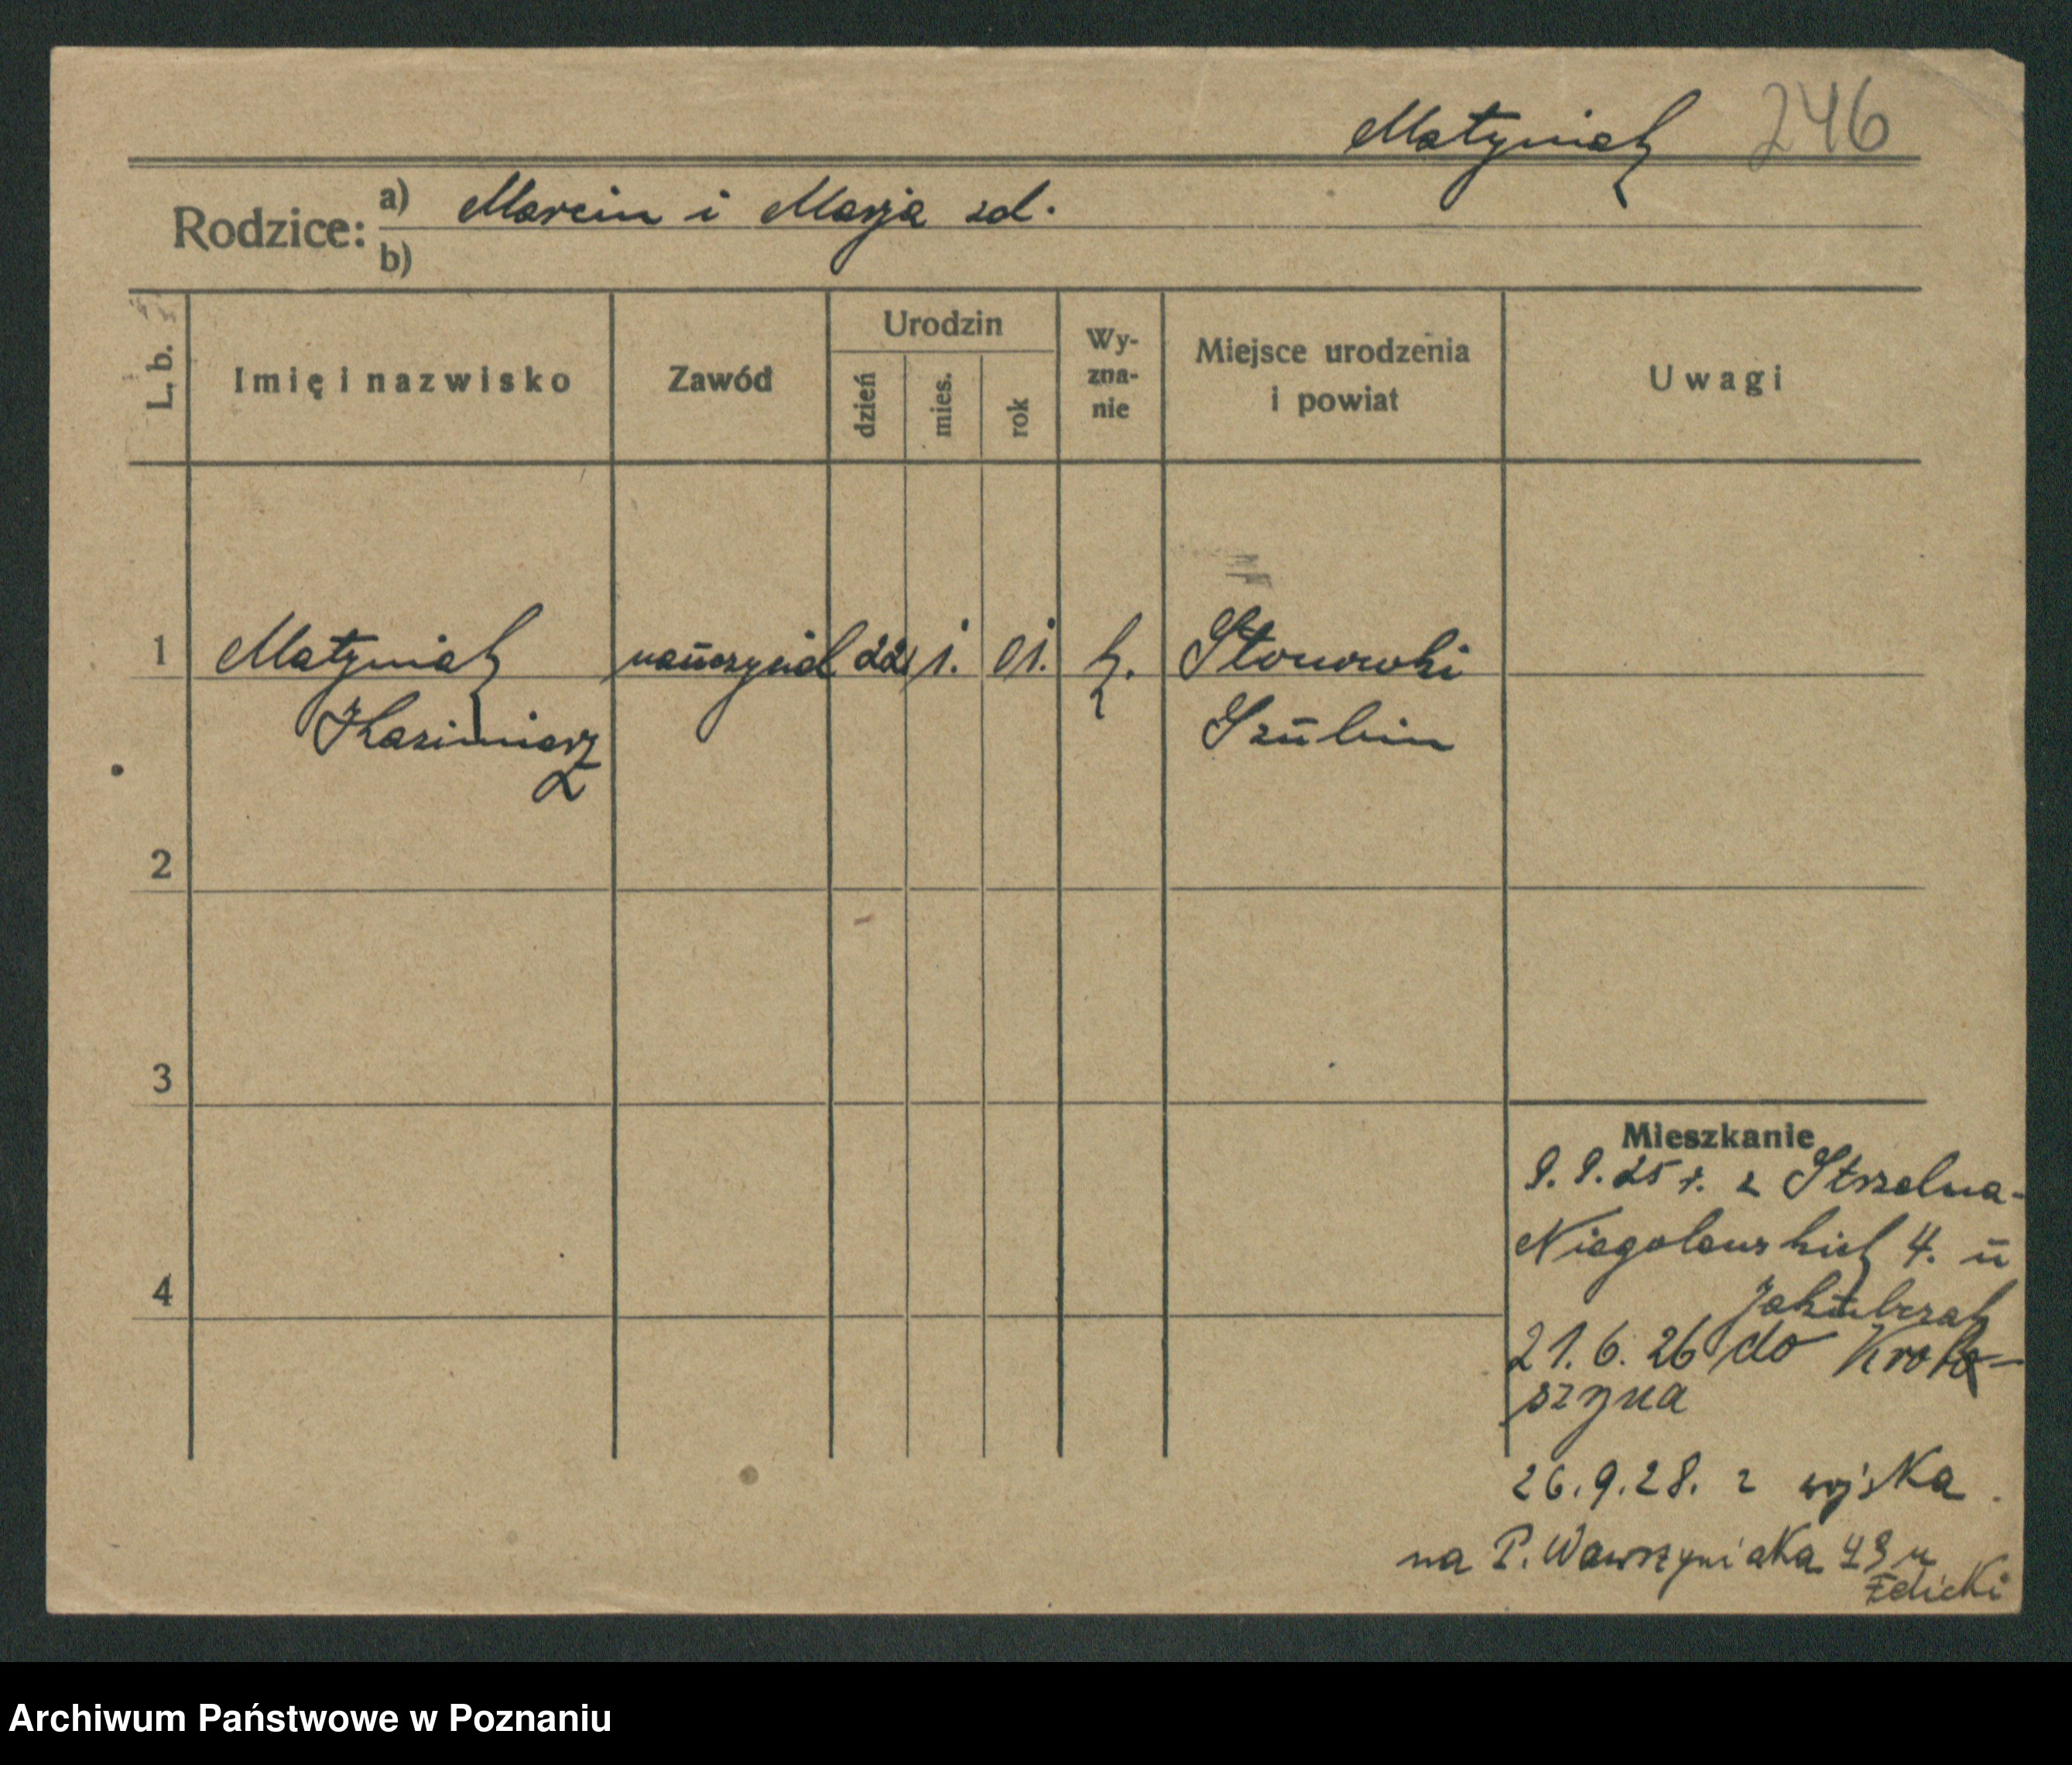 Matyniak 246
Rodzice: a) Marcin i Marja zd.
b)
L. b. Imię i nazwisko Zawód Urodzin dzień mies. rok Wy-zna-nie Miejsce urodzenia i powiat Uwagi
1 Matyniak nauczyciel 22 1. 01. k. Słonawki
Kazimierz Szubin
2
3
Mieszkanie
9. 9. 25 r. z Strzelna-
Niegolewskich 4. u
4
Jakubczak
21. 6. 26 do Kroto-
szyna
26.9.28. z wojska.
na P. Wawrzyniaka 43 u
Archiwum Państwowe w Poznaniu